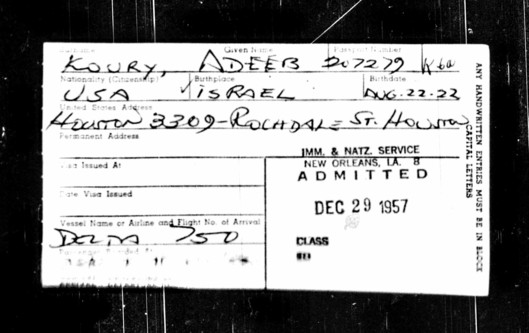 Surname Given Name Passport Number
KOURY, ADEEB 207279
Nationality (Citizenship) Birthplace Birthdate
USA ISRAEL AUG. 22-22
United States Address
HOUSTON 3309-ROCHDALE ST. HOUSTON
Permanent Address
Visa Issued At
Date Visa Issued
Vessel Name or Airline and Flight No. of Arrival
DELTA 750
IMM. & NATZ. SERVICE
NEW ORLEANS, LA. 8
ADMITTED
DEC 29 1957
CLASS
ANY HANDWRITTEN ENTRIES MUST BE IN BLOCK
CAPITAL LETTERS